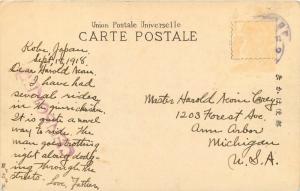 Union Postale Universelle
CARTE POSTALE
Kobe, Japan.
Sept. 18, 1918.
Dear Harold Mcan.
I have had
several rides
in the jinrickisha.
It is quite a novel
way to ride. The
man goes trotting
right along dodg-
ing through the
streets. Love, Father.
Master Harold Carey
1203 Forest Ave,
Ann Arbor
Michigan
U.S.A.